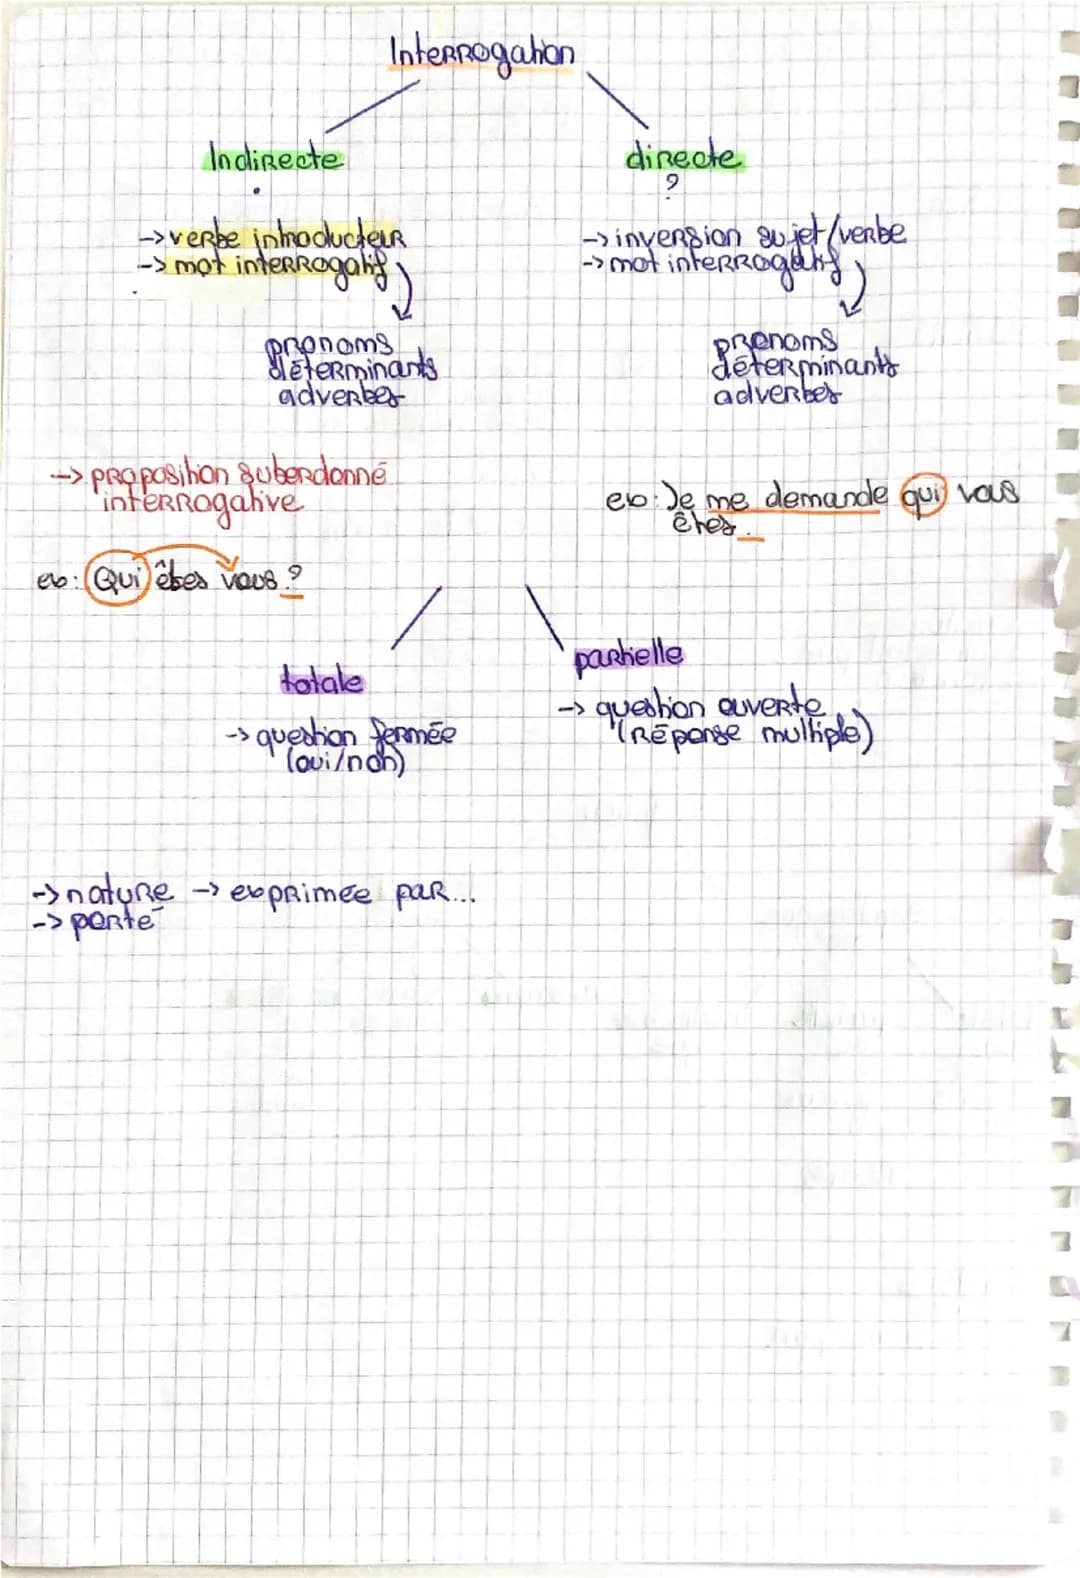 Interrogation
Indirecte
.
-> verbe introducteur
-> mot interrogatif
pronoms
déterminants
adverbes
-> proposition suberdonné
interrogative
ex: Qui êtes vous ?
directe
?
-> inversion sujet/verbe
-> mot interrogatif
pronoms
déterminants
adverbes
ex: Je me demande qui vous
êtes.
totale
-> question fermée
(oui/non)
partielle
-> question ouverte
(Réponse multiple)
-> nature -> exprimée par...
-> porté